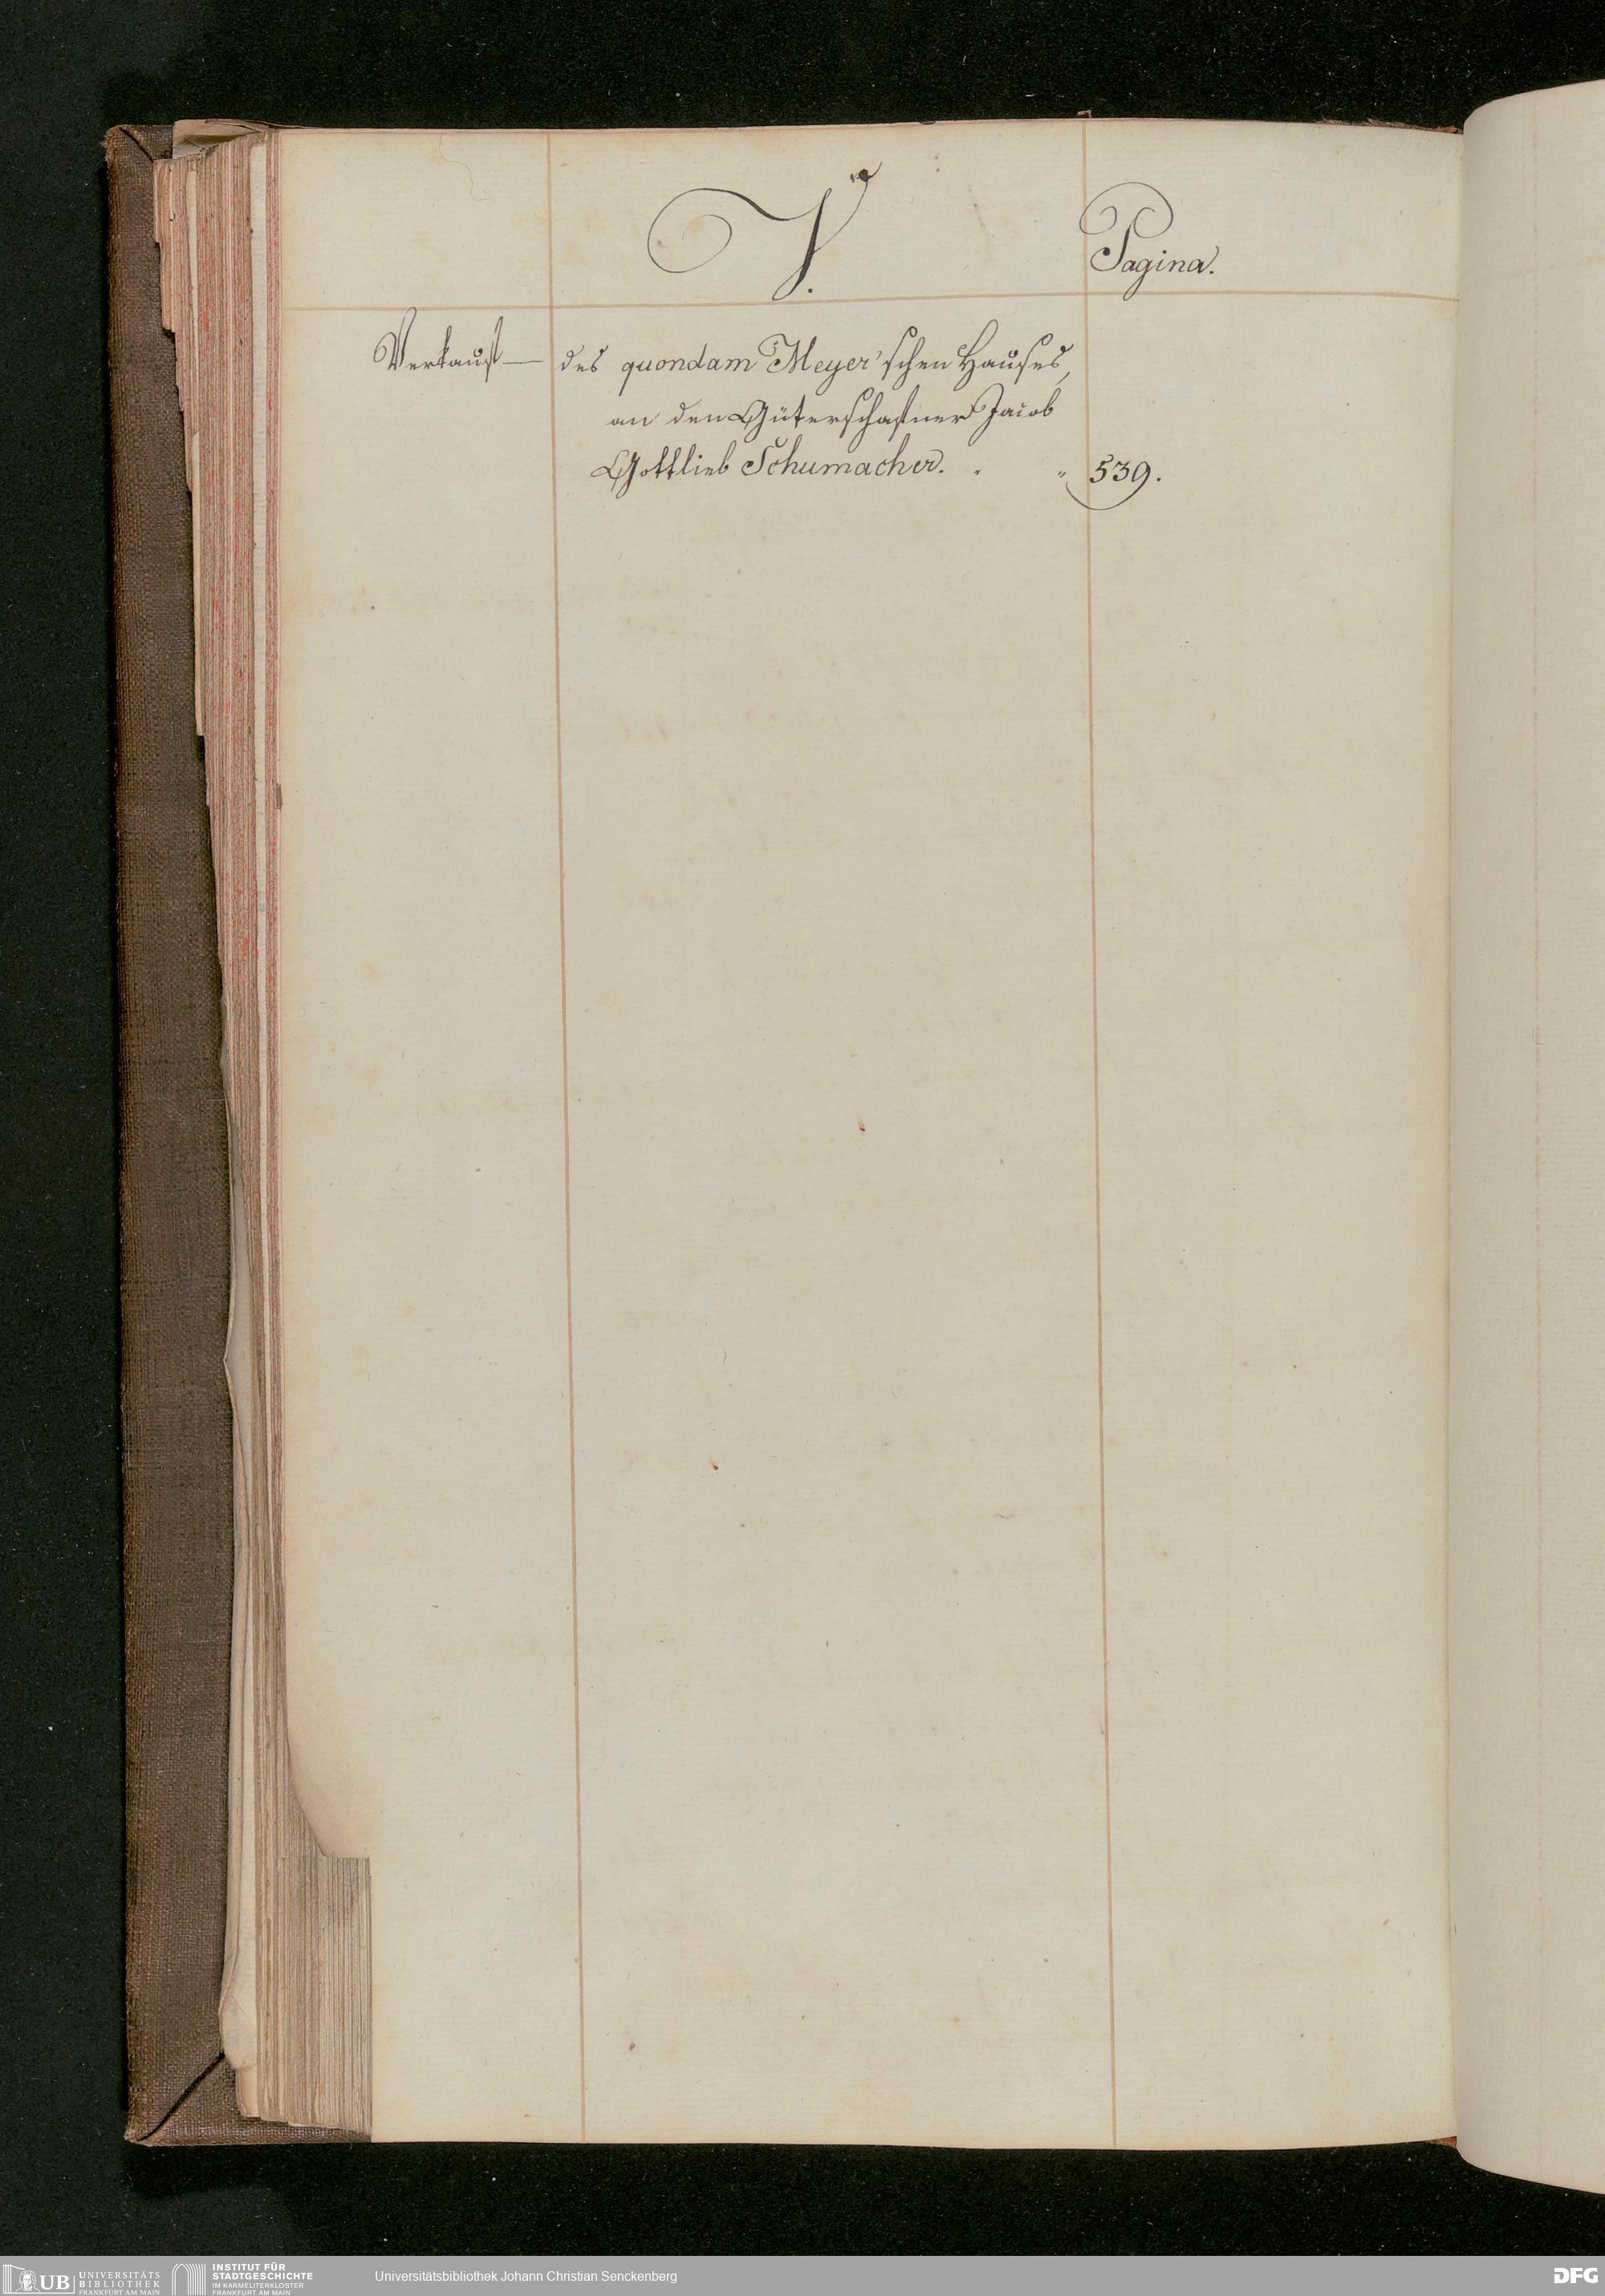 V.
Pagina.
Verkauf — des quondam Meyer'schen Hauses,
an den Güterschaffner Jacob
Gottlieb Schumacher. . " 539.
UB UNIVERSITÄTS BIBLIOTHEK FRANKFURT AM MAIN
INSTITUT FÜR STADTGESCHICHTE IM KARMELITERKLOSTER FRANKFURT AM MAIN
Universitätsbibliothek Johann Christian Senckenberg
DFG